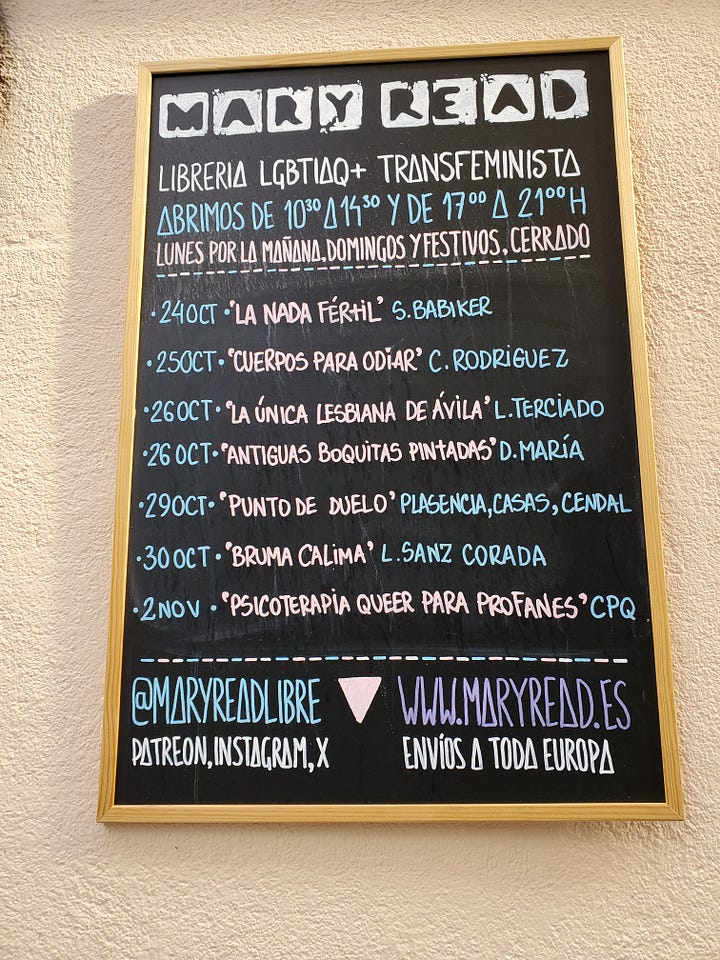 MARY READ
LIBRERIA LGBTIAQ+ TRANSFEMINISTA
ABRIMOS DE 10³⁰ A 14³⁰ Y DE 17⁰⁰ A 21⁰⁰ H
LUNES POR LA MAÑANA, DOMINGOS Y FESTIVOS, CERRADO
•24OCT•"LA NADA FÉRtiL" S.BABIKER
•25OCT•"CUERPOS PARA ODiAR" C.RODRiGUEZ
•26OCT•"LA ÚNICA LESBIANA DE ÁVILA" L.TERCIADO
•26OCT•"ANTIGUAS BOQUITAS PINtADAS" D.MARÍA
•29OCT•"PUNTO DE DUELO" PLASENCIA, CASAS, CENDAL
•30OCT•"BRUMA CALIMA" L.SANZ CORADA
•2NOV•"PSICOTERAPiA QUEER PARA PROFANES" CPQ
@MARYREADLIBRE WWW.MARYREAD.ES
PATREON, INSTAGRAM, X ENVÍOS A TODA EUROPA